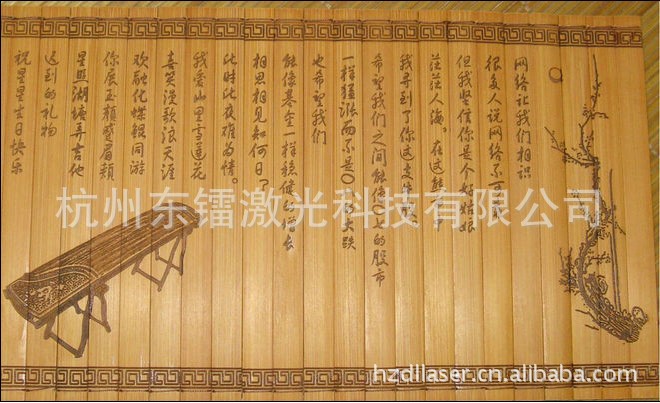 网络让我们相识
很多人说网络不可
但我坚信你是个好姑娘
茫茫人海，在这熊
我寻到了你这支
希望我们之间能像 的股市
一样猛涨而不是0 大跌
也希望我们
能像基金一样稳候的增长
相思相见知何日？
此时此夜难为情。
我爱山里雪莲花
喜笑漫歌浪天涯
欢融化蝶 同游
你展玉颜蹙眉
星照湖塘弄吉他
迟到的礼物
祝星星生日快乐
杭州东镭激光科技有限公司
hzdllaser.cn.alibaba.com